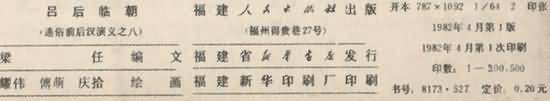 吕后临朝
(通俗前后汉演义之八)
梁任 编文
耀伟 傅萌 庆拾 绘画
福建人民出版社出版
(福州得贵巷27号)
福建省新华书店发行
福建新华印刷厂印刷
开本 787×1092 1/64 2 印张
1982年4月第1版
1982年4月第1次印刷
印数:1—200,500
书号:8173·527 定价:0.20元